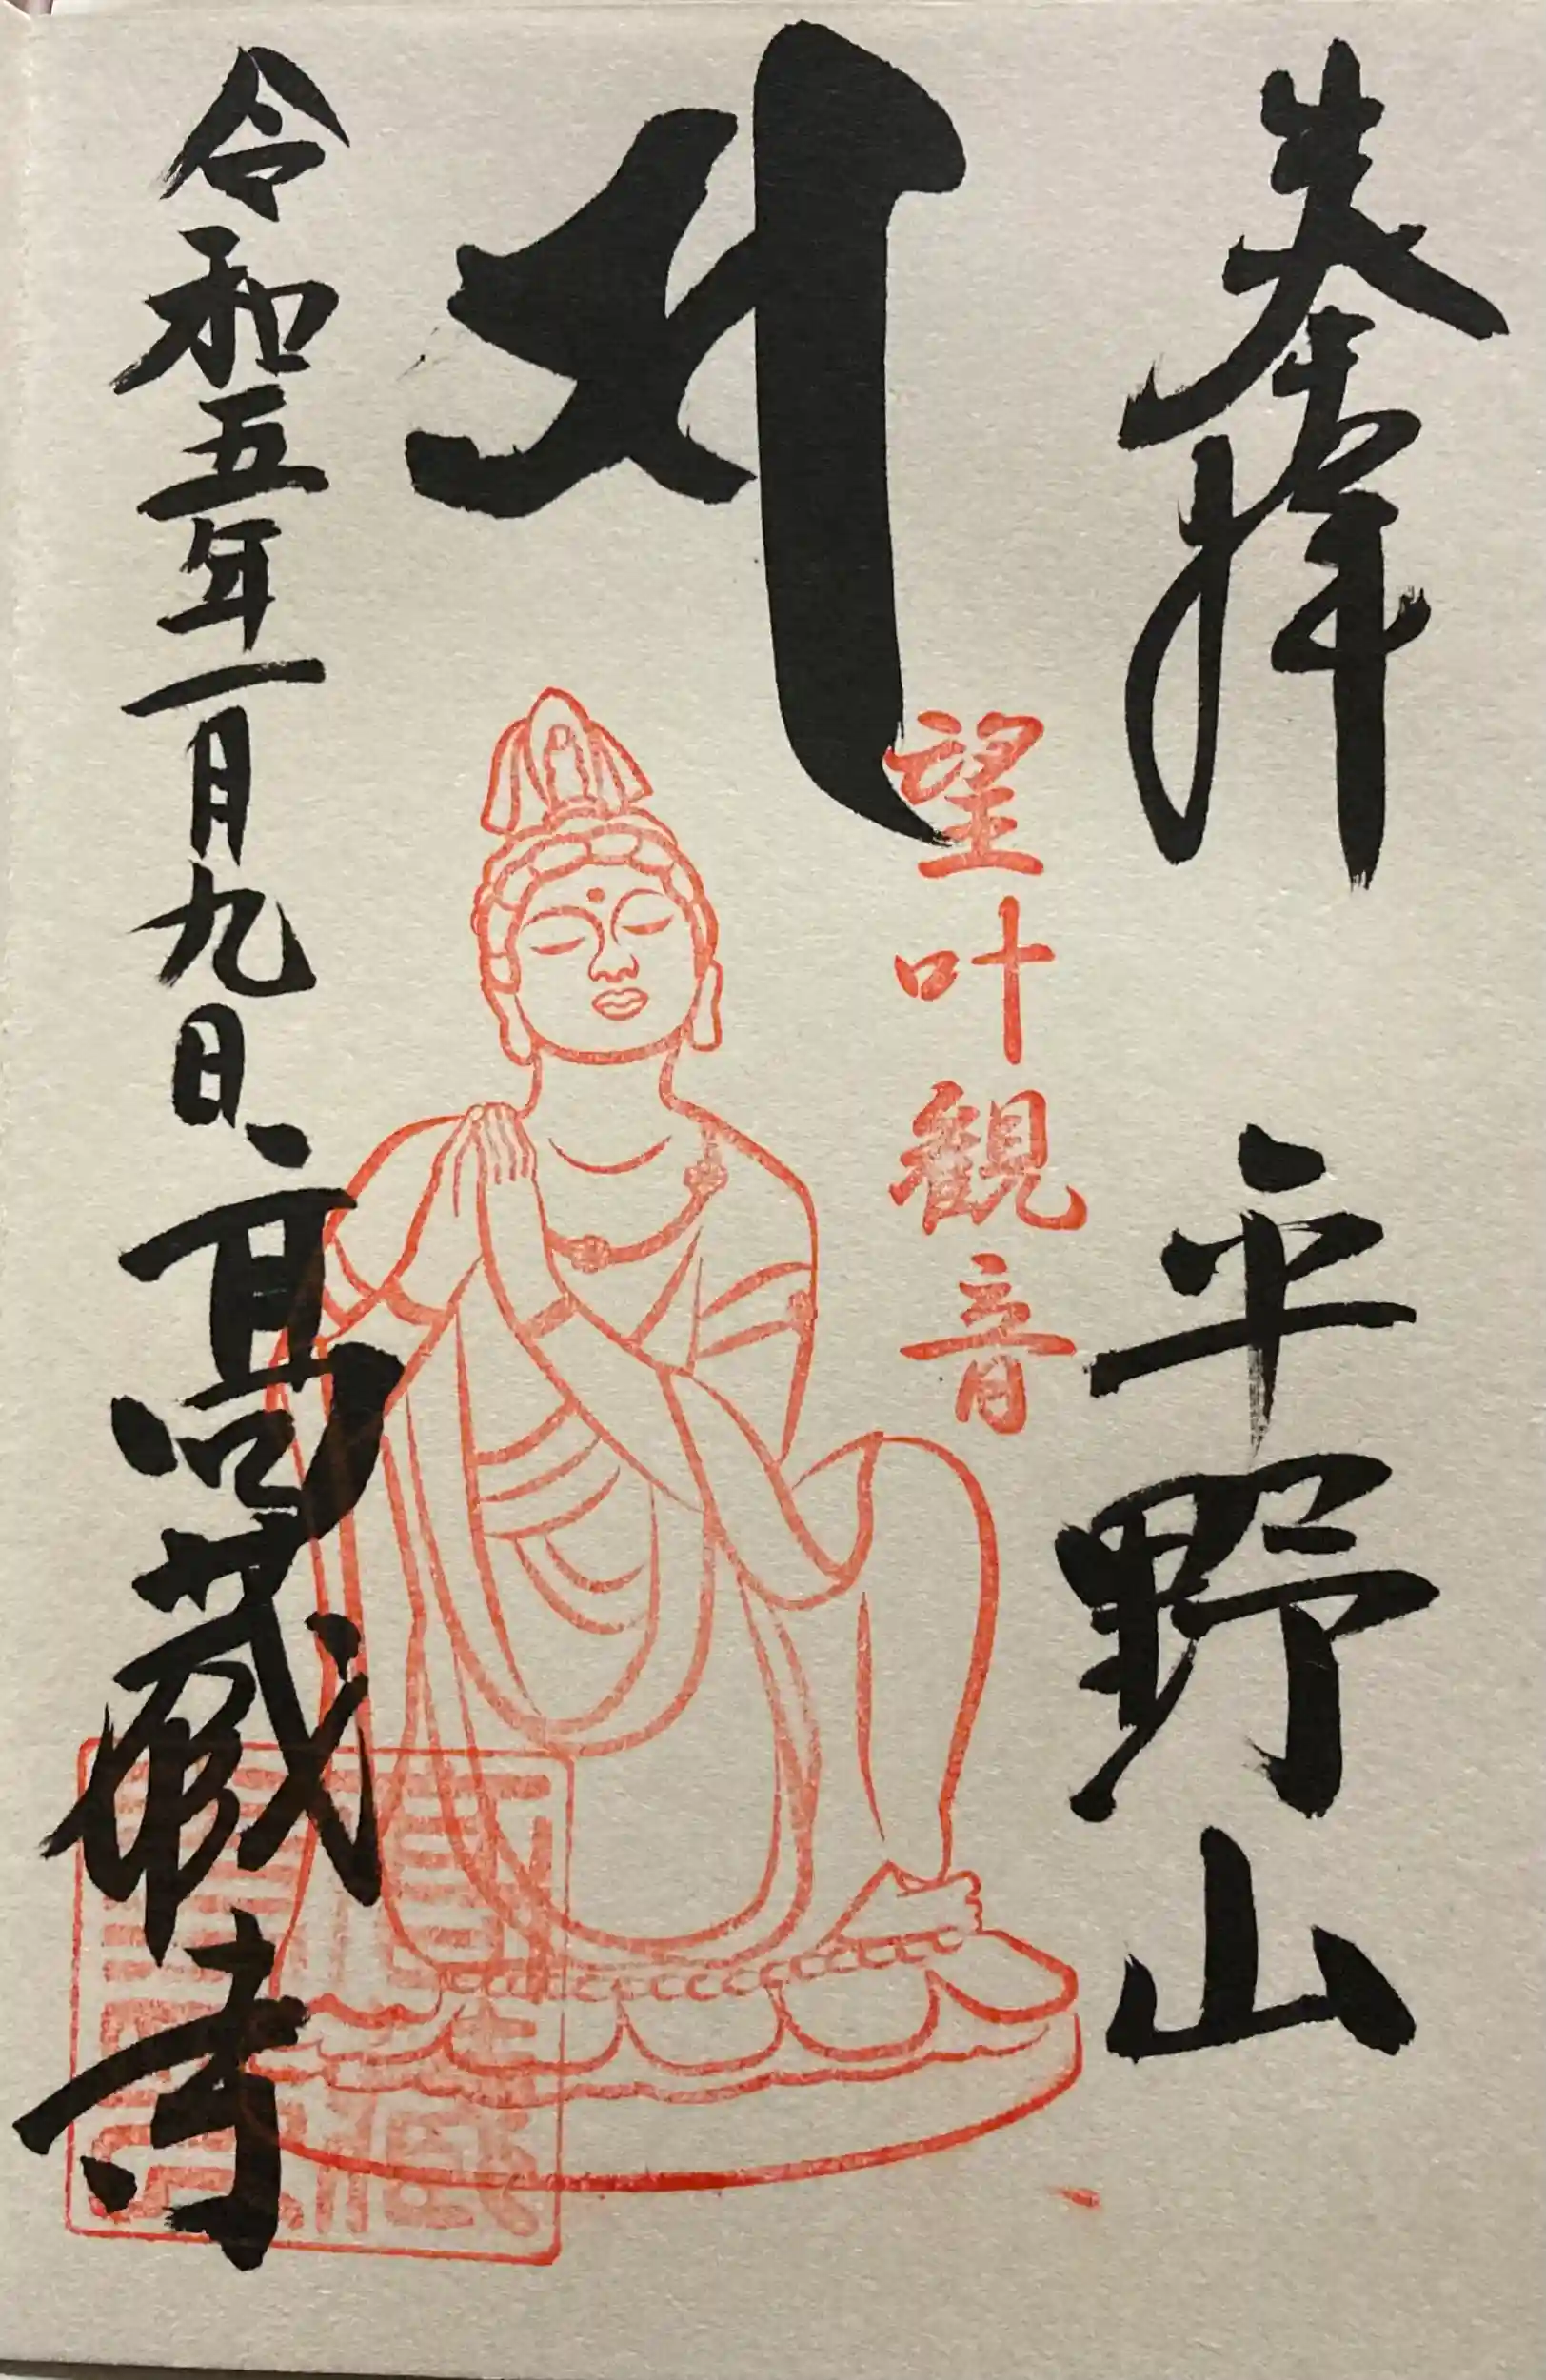 奉拝
平野山
望叶観音
令和五年一月九日
高蔵寺